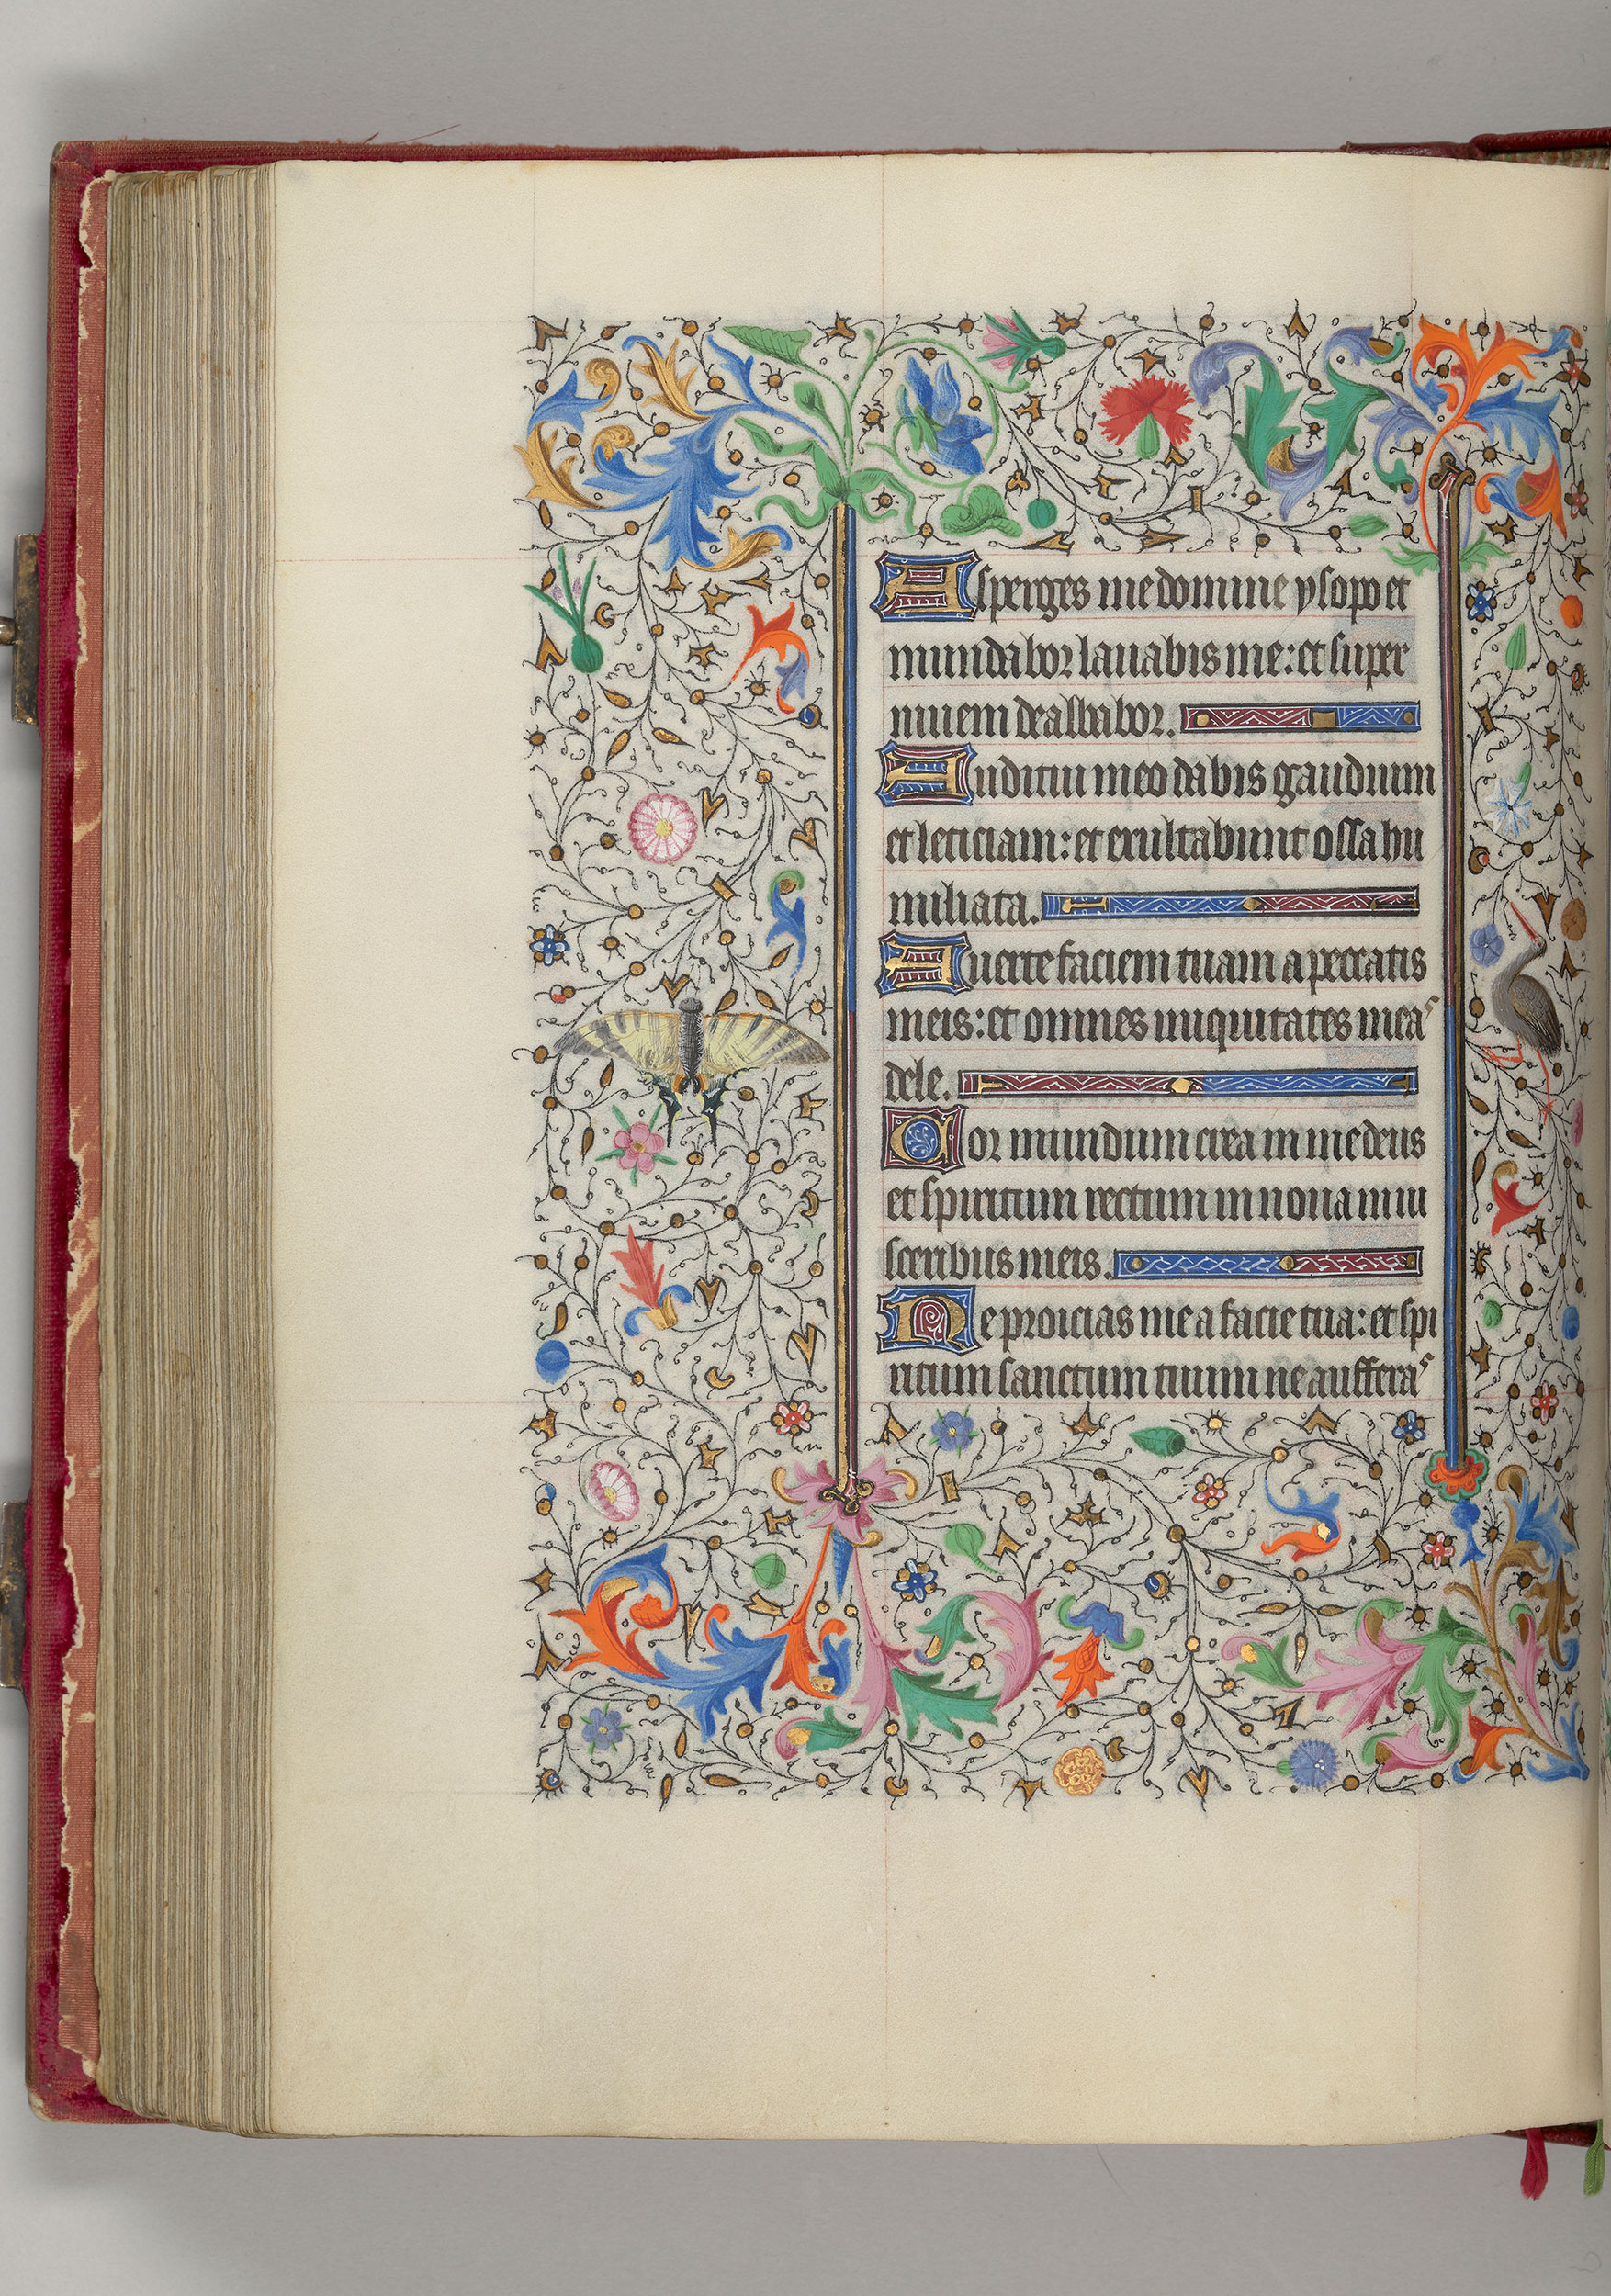 Asperges me domine ysopo et
mundabor lauabis me: et super
niuem dealbabor.
Auditui meo dabis gaudium
et leticiam: et exultabunt ossa hu
miliata.
Auerte faciem tuam a peccatis
meis: et omnes iniquitates meas
dele.
Cor mundum crea in me deus
et spiritum rectum innoua in ui
sceribus meis.
Ne proicias me a facie tua: et spi
ritum sanctum tuum ne aufferas